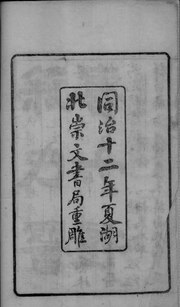 同治十二年夏湖
北崇文書局重雕